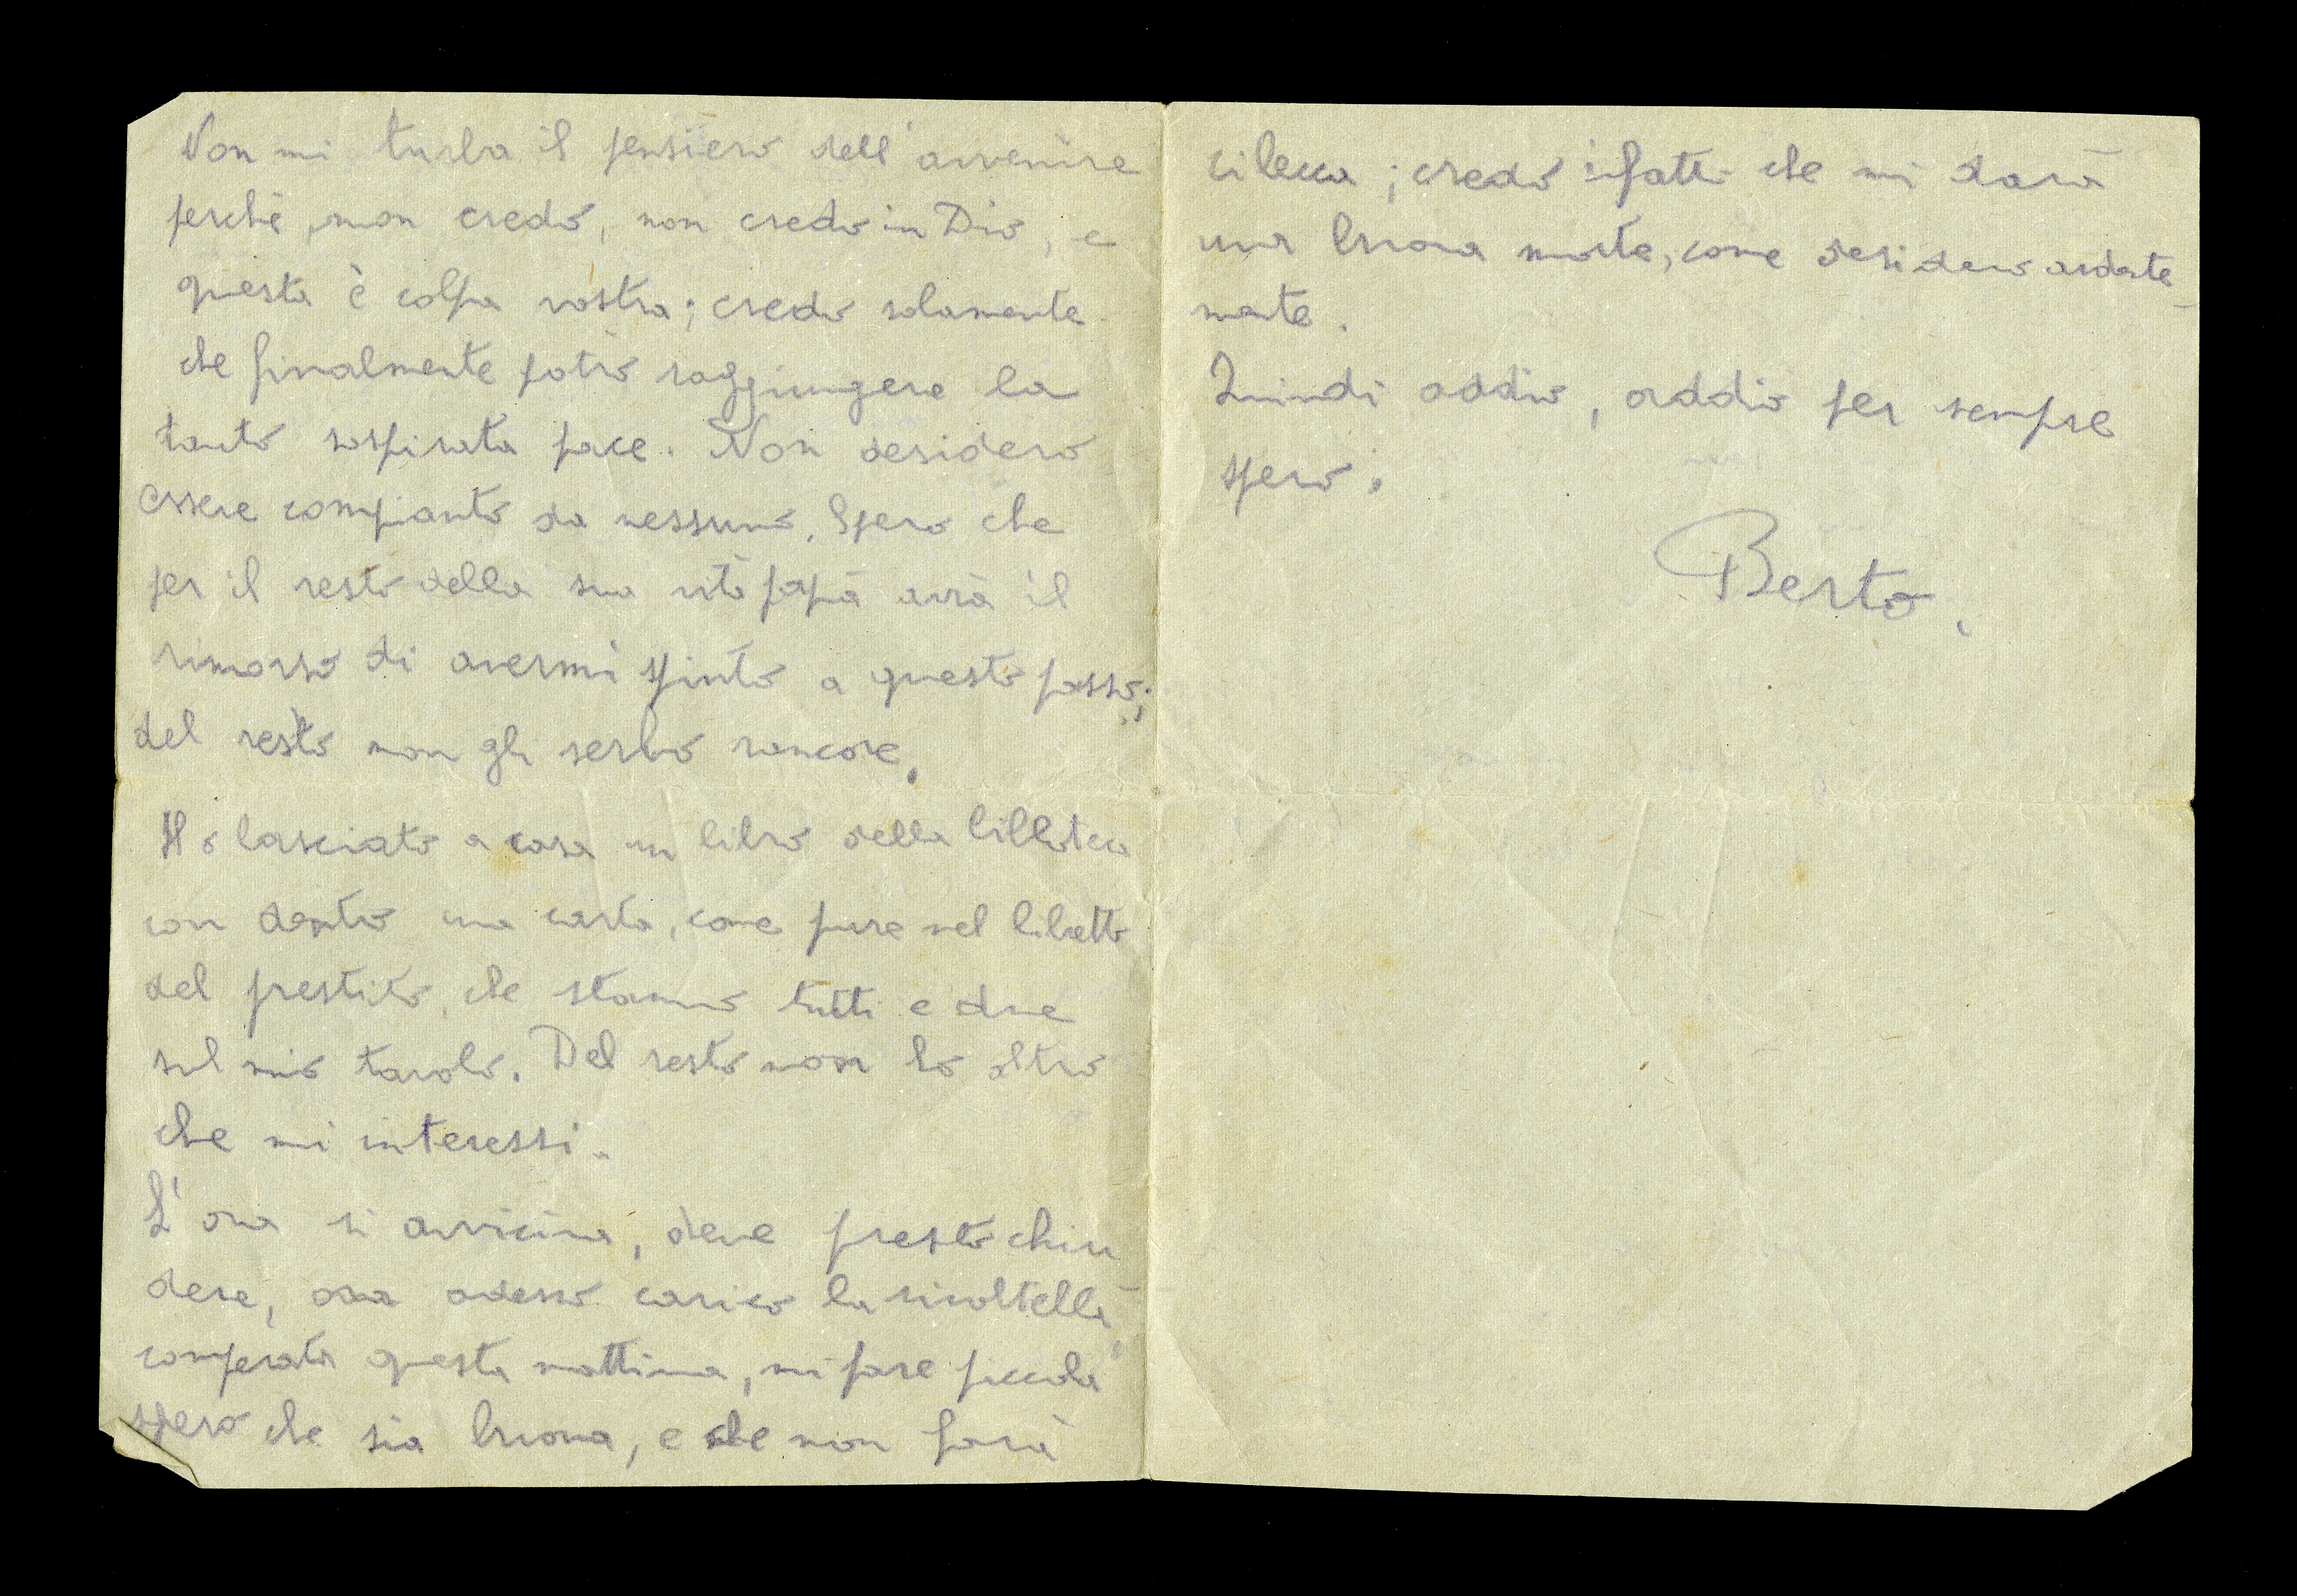 Non mi turba il pensiero dell'avvenire
perchè, non credo, non credo in Dio, e
questa è colpa vostra; credo solamente
che finalmente potrò raggiungere la
tanto sospirata pace. Non desidero
essere compianto da nessuno. Spero che
per il resto della sua vita papà avrà il
rimorso di avermi spinto a questo passo;
del resto non gli serbo rancore.
Ho lasciato a casa un libro della biblioteca
con dentro una carta, come pure nel libretto
del prestito, che stanno tutti e due
sul mio tavolo. Del resto non ho altro
che mi interessi.
L'ora si avvicina, deve presto chiu
dere, ora adesso carico la rivoltella
comperata questa mattina, mi pare piccola
spero che sia buona, e che non farà
cilecca; credo infatti che mi darà
una buona morte, come desidero ardente-
mente.
Quindi addio, addio per sempre
spero.
Berto.